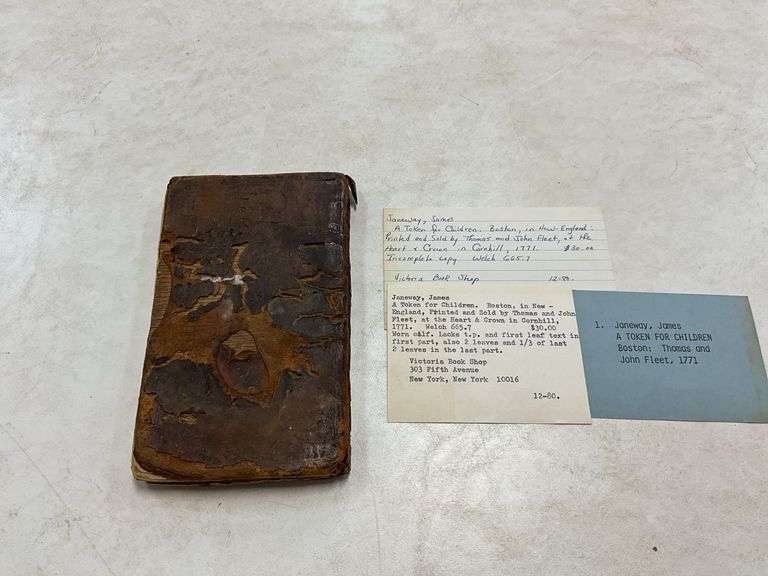 Janeway, James
A Token for Children. Boston, in New-England:
Printed and Sold by Thomas and John Fleet, at the
Heart & Crown in Cornhill, 1771. $30.00
Incomplete copy Welch 665.7
Victoria Book Shop 12-80.
Janeway, James
A Token for Children. Boston, in New -
England, Printed and Sold by Thomas and John
Fleet, at the Heart & Crown in Cornhill,
1771. Welch 665.7 $30.00
Worn calf. Lacks t.p. and first leaf text in
first part, also 2 leaves and 1/3 of last
2 leaves in the last part.
Victoria Book Shop
303 Fifth Avenue
New York, New York 10016
12-80.
1. Janeway, James
A TOKEN FOR CHILDREN
Boston: Thomas and
John Fleet, 1771